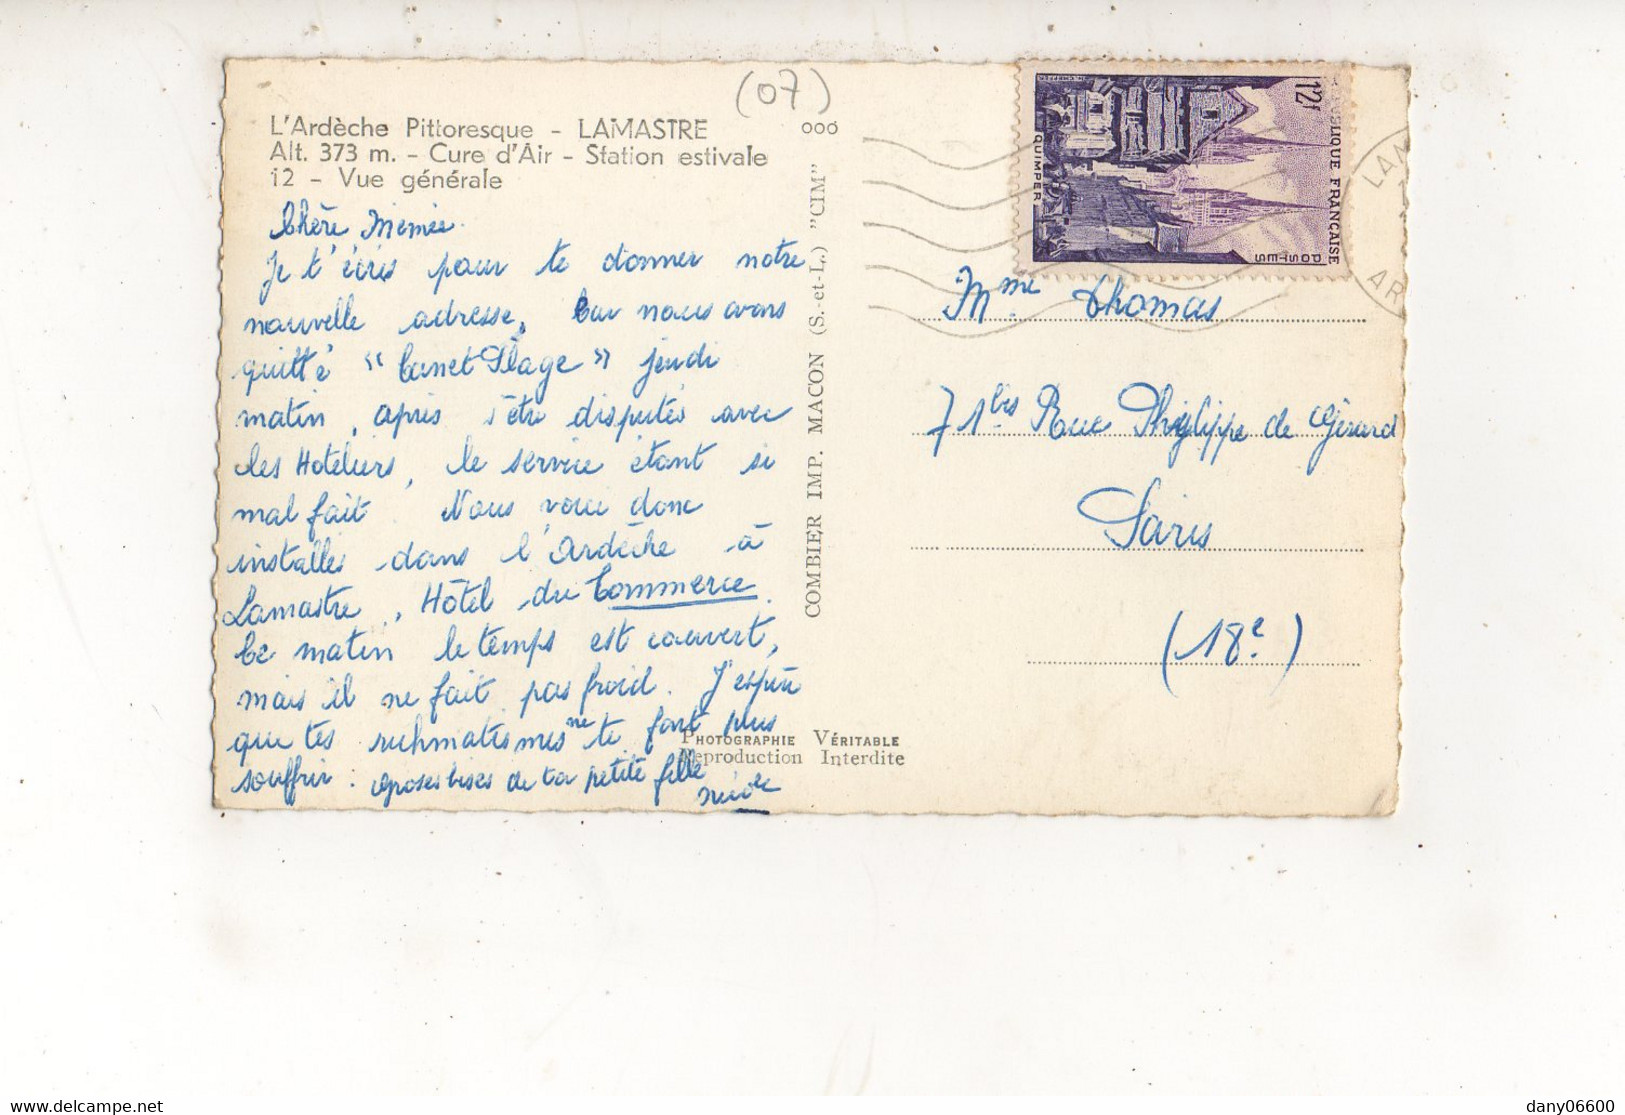 (07)
L'Ardèche Pittoresque - LAMASTRE
Alt. 373 m. - Cure d'Air - Station estivale
12 - Vue générale
ooo
Chère Mémée.
Je t'écris pour te donner notre
nouvelle adresse, Car nous avons
quitté "Canet Plage" jeudi
matin, après s'être disputés avec
les Hoteliers, le service étant si
mal fait. Nous voici donc
installés dans l'Ardèche à
Lamastre, Hôtel du Commerce.
Ce matin le temps est couvert,
mais il ne fait pas froid. J'espère
que tes ruhmatismes ne te font plus
souffrir. Groses bises de ta petite fille
Nicole
COMBIER IMP. MACON (S.-et-L.) "CIM"
PHOTOGRAPHIE VÉRITABLE
Reproduction Interdite
12f
POSTES
QUIMPER
LAM
AR
Mme Thomas
71bis Rue Philippe de Gérard
Paris
(18e)
dany06600